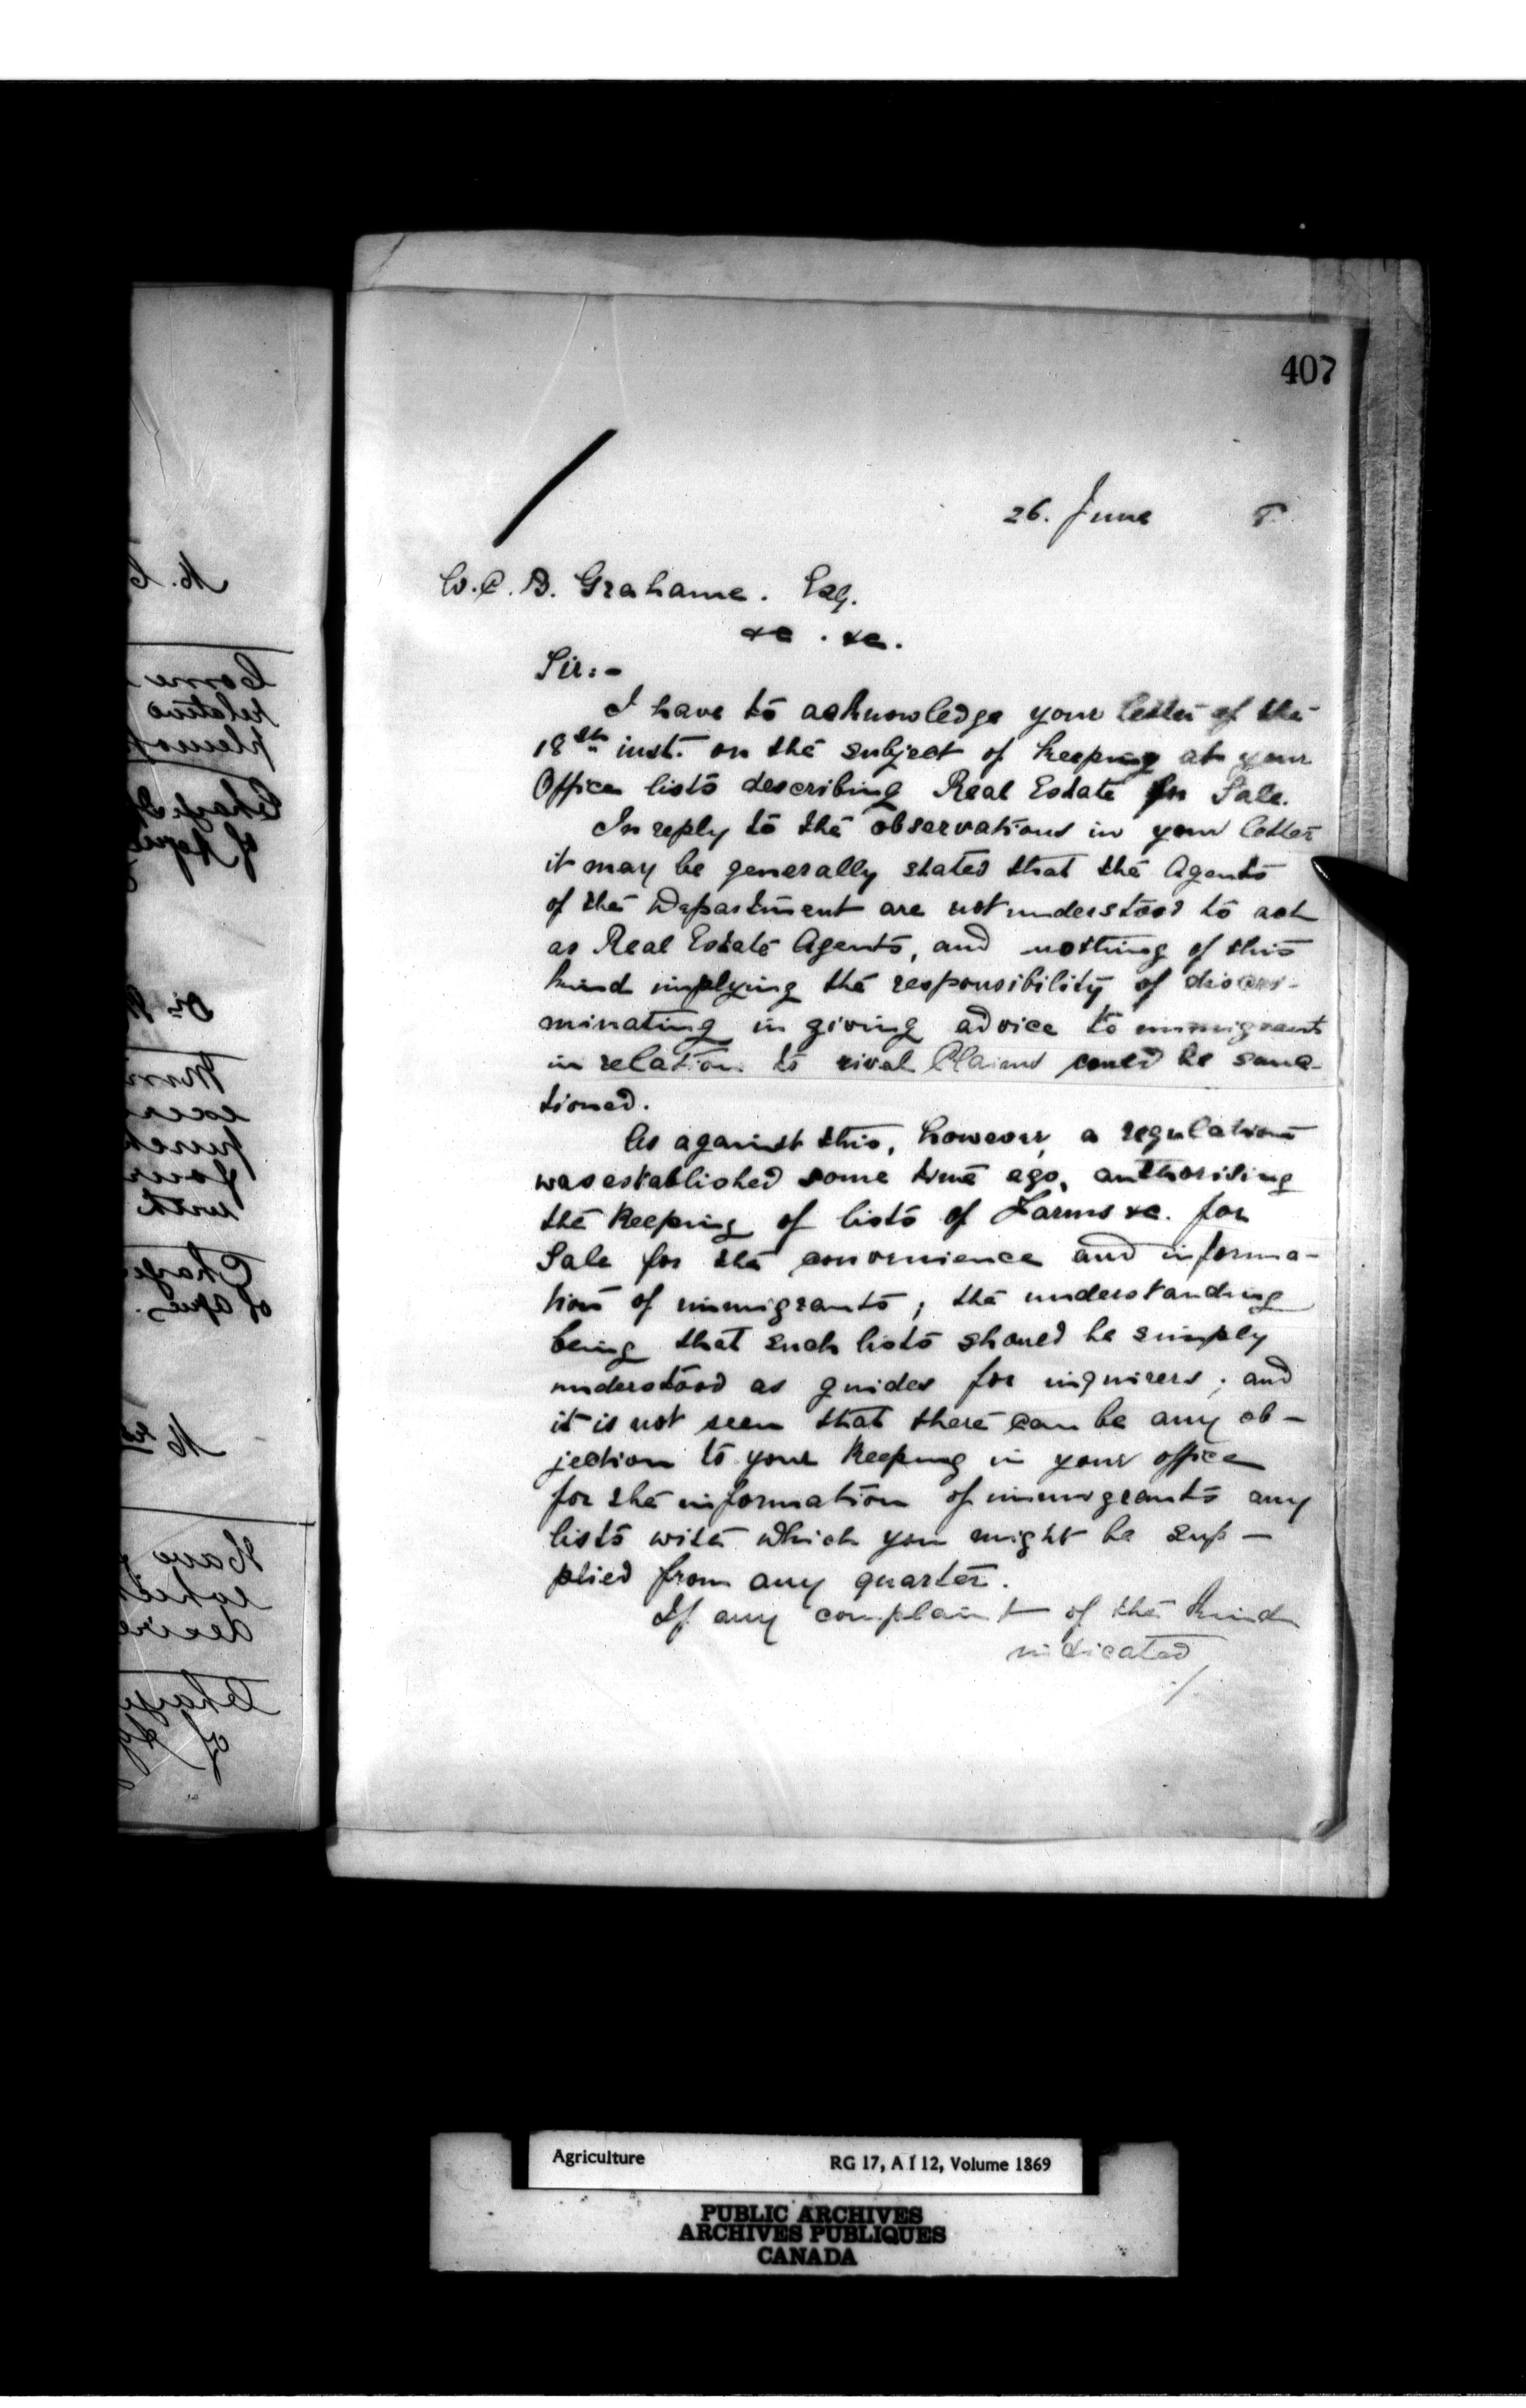 407
26. June 8
W. C. B. Grahame. Esq.
&c. &c.
Sir:-
I have to acknowledge your letter of the
18th inst. on the subject of keeping at your
Office lists describing Real Estate for Sale.
In reply to the observations in your letter
it may be generally stated that the Agents
of the Department are not understood to act
as Real Estate Agents, and nothing of this
kind implying the responsibility of discri-
minating in giving advice to immigrants
in relation to rival Claims could be sanc-
tioned.
As against this, however, a regulation
was established some time ago, authorising
the keeping of lists of Farms &c. for
Sale for the convenience and informa-
tion of immigrants; the understanding
being that such lists should be simply
understood as guides for inquirers; and
it is not seen that there can be any ob-
jection to your keeping in your office
for the information of immigrants any
lists with which you might be sup-
plied from any quarter.
If any complaint of the kind
indicated
./.
Agriculture RG 17, A I 12, Volume 1869
PUBLIC ARCHIVES
ARCHIVES PUBLIQUES
CANADA